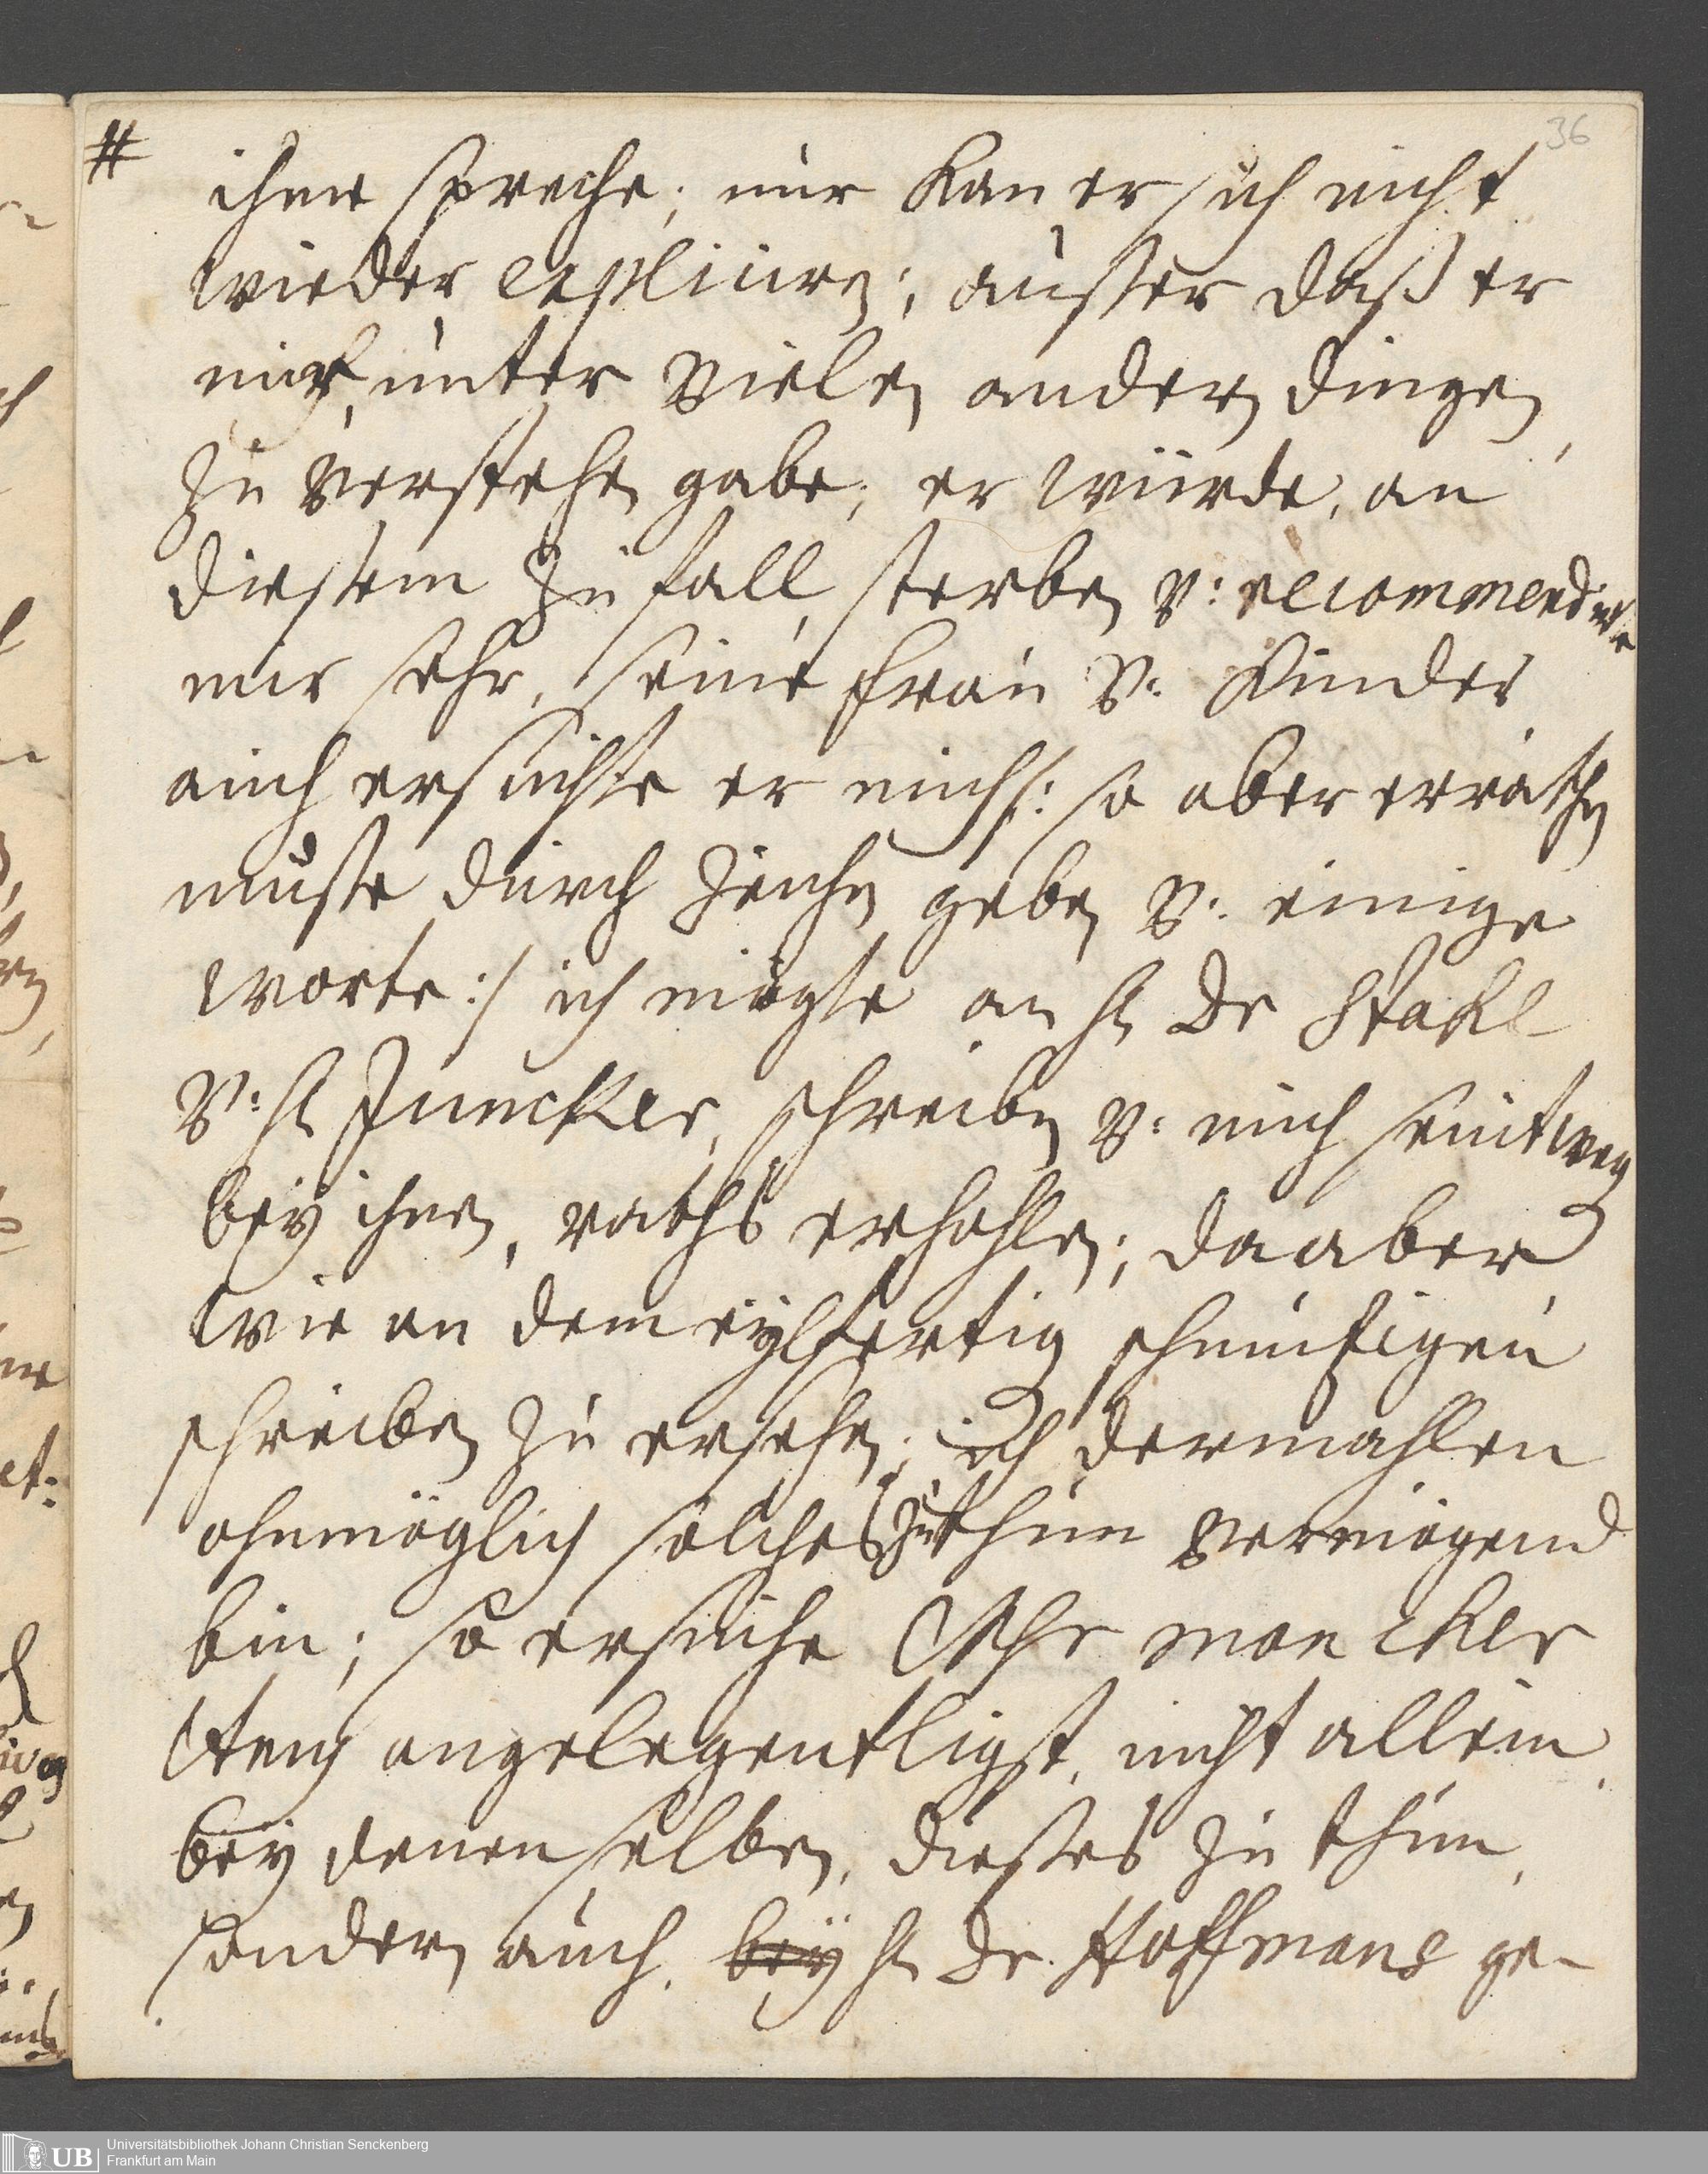 36
# ihme spreche; nur kan er sich nicht
wieder expliciren; ausser daß er
mir, unter vielen andern dingen,
zu verstehen gabe, er würde, an
diesem Zufall, sterben v: recommendirte
mir sehr, seine Frau v: Kinder,
auch ersuchte er mich /: so aber errathen
muste durch Zeichen geben v: einige
worte :/ ich mögte an H Dr Stahl
v: H Juncker, schreiben v: mich seintwegen
bey ihnen, raths erhohlen; da aber
wie an dem eylfertig
schreiben zu ersehen; ich dermahlen
ohnmöglich solches zu thun vermögend
bin; so ersuche
angelegentligst, nicht allein,
bey denenselben, dieses zu thun,
sondern auch, bey H Dr. Hoffmans ge-
UB
Universitätsbibliothek Johann Christian Senckenberg
Frankfurt am Main